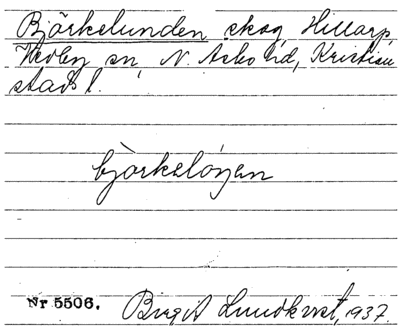 Björkelunden skog, Hillarp,
Wedby sn, N Asbo hd, Kristian
stads l.
björkelóŋen
Nr 5506. Birgit Lundkvist, 1937.